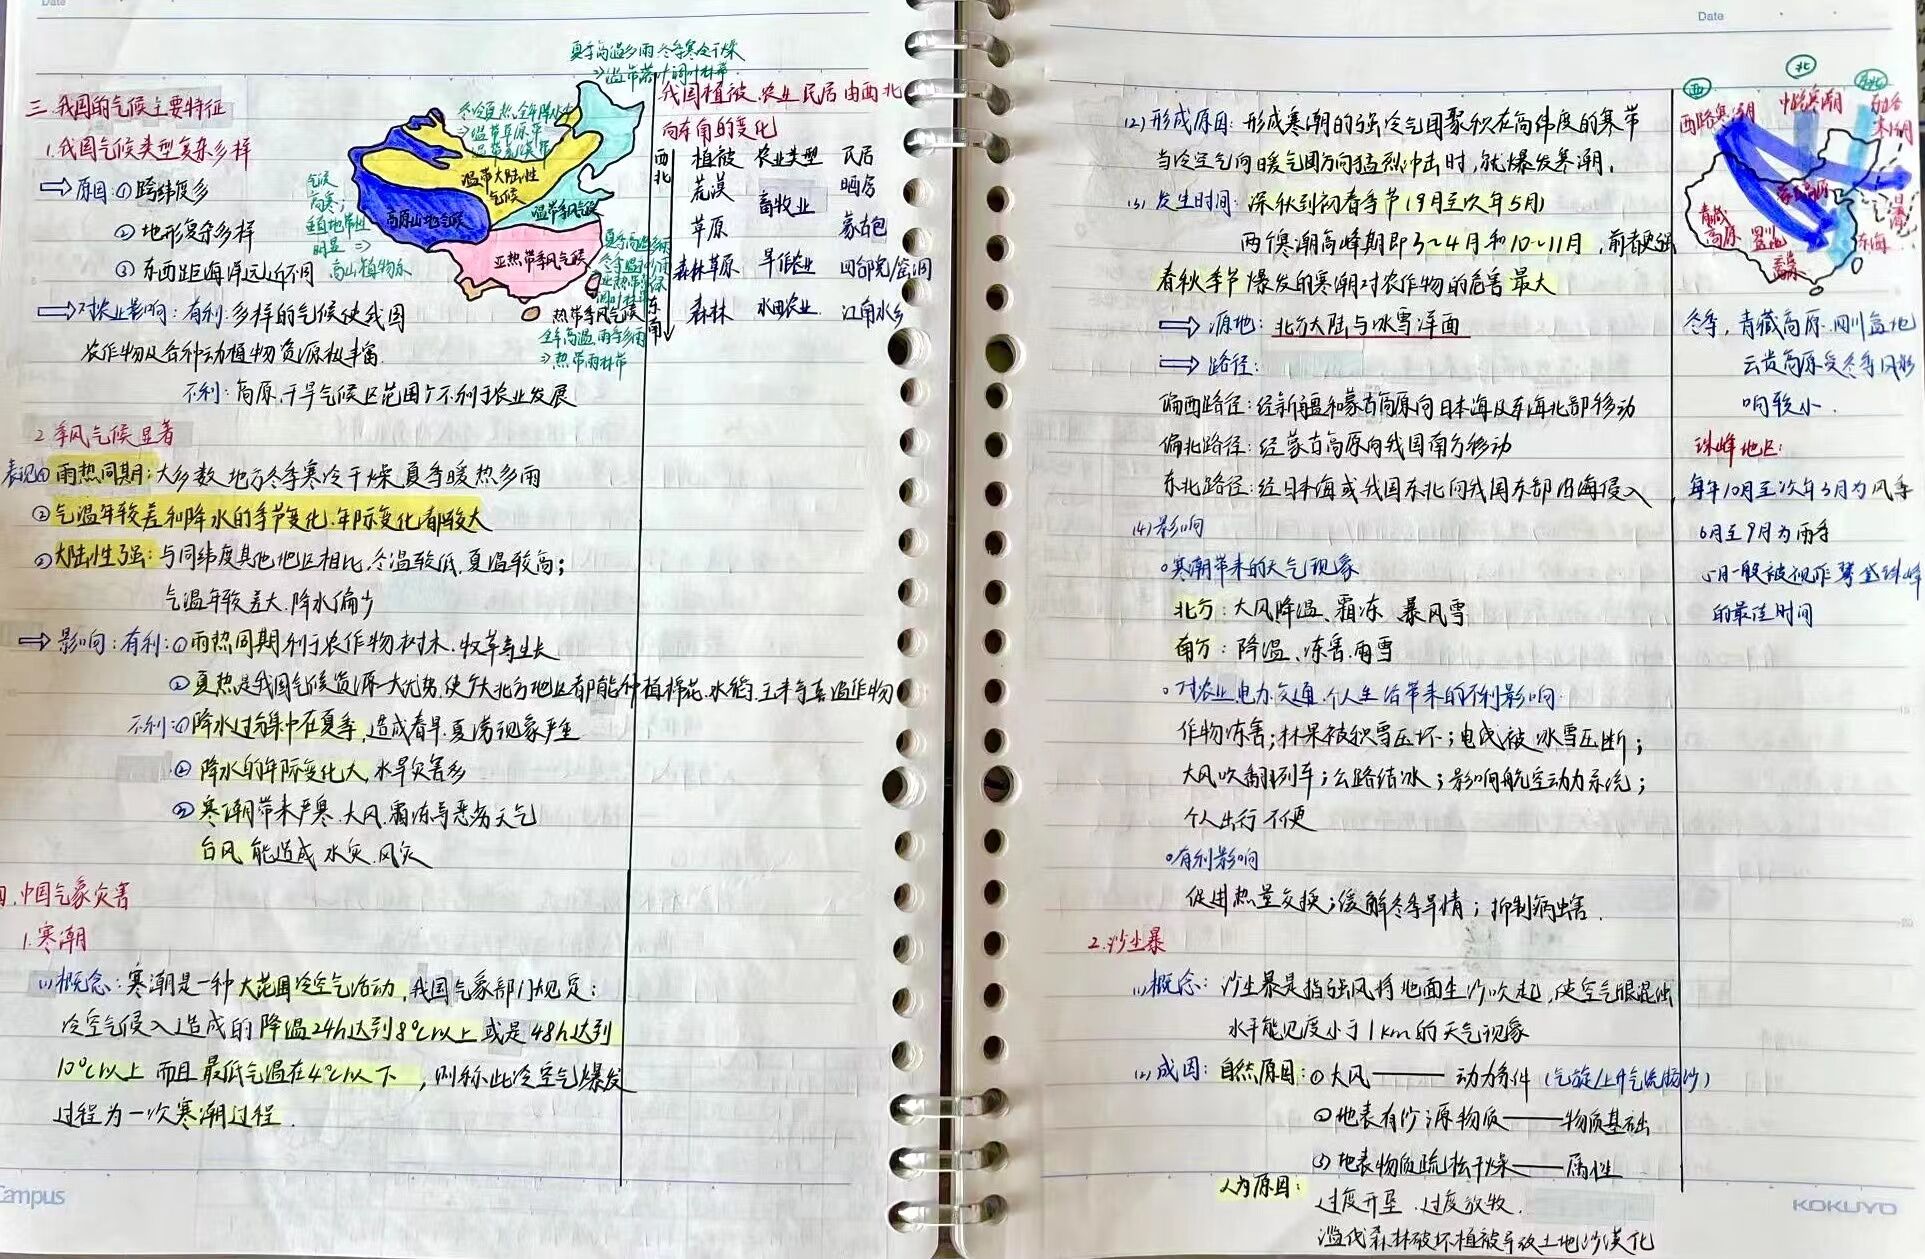 Date
三.我国的气候主要特征
1.我国气候类型复杂多样
⇒原因:①跨纬度多
②地形复杂多样
③东西距海洋远近不同
⇒对农业影响:有利:多样的气候使我国
农作物及各种动植物资源极丰富.
不利:高原,干旱气候区范围广不利于农业发展
夏季高温多雨冬季寒冷干燥
⇒温带落叶阔叶林带
冬冷夏热,全年降水少
温带大陆性
气候
高原山地气候
温带季风气候
亚热带季风气候
热带季风气候
气候
高寒;
垂直地带性
明显⇒
高山植物带
全年高温,雨季多雨
⇒热带雨林带
我国植被.农业.民居由西北
向东南的变化
西北
植被 农业类型 民居
荒漠 畜牧业 晒房
草原 蒙古包
森林草原 旱作农业 四合院/窑洞
森林 水田农业 江南水乡
东南
2.季风气候显著
表现①雨热同期:大多数地方冬季寒冷干燥.夏季暖热多雨
②气温年较差和降水的季节变化.年际变化都较大
③大陆性强:与同纬度其他地区相比,冬温较低.夏温较高;
气温年较差大.降水偏少
⇒影响:有利:①雨热同期利于农作物.树木.牧草等生长
②夏热是我国气候资源一大优势,使广大北方地区都能种植棉花.水稻.玉米等喜温作物
不利:①降水过分集中在夏季,造成春旱.夏涝现象严重
②降水的年际变化大,水旱灾害多
③寒潮带来严寒.大风.霜冻等恶劣天气
台风能造成水灾.风灾
四.中国气象灾害
1.寒潮
(1)概念:寒潮是一种大范围冷空气活动,我国气象部门规定:
冷空气侵入造成的降温24h达到8℃以上或是48h达到
10℃以上而且最低气温在4℃以下,则称此冷空气爆发
过程为一次寒潮过程.
Campus
Date
(2)形成原因:形成寒潮的强冷气团聚积在高纬度的寒带
当冷空气向暖气团方向猛烈冲击时,就爆发寒潮.
(3)发生时间:深秋到初春季节(9月至次年5月)
两个寒潮高峰期即3~4月和10~11月,前者更强
春秋季节爆发的寒潮对农作物的危害最大
⇒源地:北方大陆与冰雪洋面
⇒路径:
偏西路径:经新疆和蒙古高原向日本海及东海北部移动
偏北路径:经蒙古高原向我国南方移动
东北路径:经日本海或我国东北向我国东部沿海侵入
(4)影响
°寒潮带来的天气现象
北方:大风降温、霜冻、暴风雪
南方:降温、冻害.雨雪
°对农业.电力.交通.个人生活带来的不利影响
作物冻害;林果被积雪压坏;电线被冰雪压断;
大风吹翻列车;公路结冰;影响航空动力系统;
个人出行不便
°有利影响
促进热量交换;缓解冬季旱情;抑制病虫害.
2.沙尘暴
(1)概念:沙尘暴是指强风将地面尘沙吹起,使空气很混浊
水平能见度小于1km的天气现象
(2)成因:自然原因:①大风——动力条件(气旋/上升气流肋沙)
②地表有沙源物质——物质基础
③地表物质疏松干燥——属性
人为原因:
过度开垦.过度放牧.
滥伐森林破坏植被导致土地沙漠化
西
北
西路寒潮
中路寒潮
青藏
高原
四川
东海
冬季,青藏高原.四川盆地
云贵高原受冬季风影
响较小.
珠峰地区:
每年10月至次年3月为风季
6月至9月为雨季
5月一般被视作攀登珠峰
的最佳时间
KOKUYO